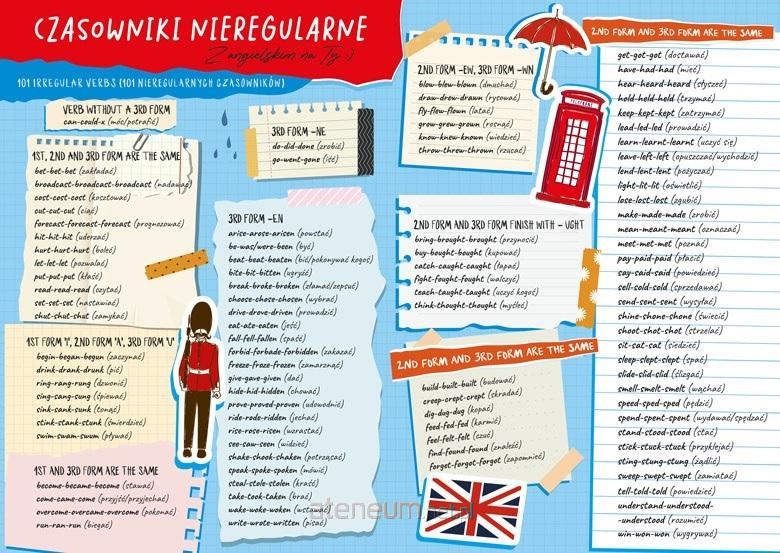 CZASOWNIKI NIEREGULARNE
Z angielskim na Ty :)
101 IRREGULAR VERBS (101 NIEREGULARNYCH CZASOWNIKÓW)
VERB WITHOUT A 3RD FORM
can-could-x (móc/potrafić)
1ST, 2ND AND 3RD FORM ARE THE SAME
bet-bet-bet (zakładać)
broadcast-broadcast-broadcast (nadawać)
cost-cost-cost (kosztować)
cut-cut-cut (ciąć)
forecast-forecast-forecast (prognozować)
hit-hit-hit (uderzać)
hurt-hurt-hurt (boleć)
let-let-let (pozwalać)
put-put-put (kłaść)
read-read-read (czytać)
set-set-set (nastawiać)
shut-shut-shut (zamykać)
1ST FORM 'I', 2ND FORM 'A', 3RD FORM 'U'
begin-began-begun (zaczynać)
drink-drank-drunk (pić)
ring-rang-rung (dzwonić)
sing-sang-sung (śpiewać)
sink-sank-sunk (tonąć)
stink-stank-stunk (śmierdzieć)
swim-swam-swum (pływać)
1ST AND 3RD FORM ARE THE SAME
become-became-become (stawać)
come-came-come (przyjść/przyjechać)
overcome-overcame-overcome (pokonać)
run-ran-run (biegać)
3RD FORM -NE
do-did-done (zrobić)
go-went-gone (iść)
3RD FORM -EN
arise-arose-arisen (powstać)
be-was/were-been (być)
beat-beat-beaten (bić/pokonywać kogoś)
bite-bit-bitten (ugryźć)
break-broke-broken (złamać/zepsuć)
choose-chose-chosen (wybrać)
drive-drove-driven (prowadzić)
eat-ate-eaten (jeść)
fall-fell-fallen (spaść)
forbid-forbade-forbidden (zakazać)
freeze-froze-frozen (zamarzać)
give-gave-given (dać)
hide-hid-hidden (chować)
prove-proved-proven (udowodnić)
ride-rode-ridden (jechać)
rise-rose-risen (wzrastać)
see-saw-seen (widzieć)
shake-shook-shaken (potrząsać)
speak-spoke-spoken (mówić)
steal-stole-stolen (kraść)
take-took-taken (brać)
wake-woke-woken (wstawać)
write-wrote-written (pisać)
ateneum
2ND FORM -EW, 3RD FORM -WN
blow-blew-blown (dmuchać)
draw-drew-drawn (rysować)
fly-flew-flown (latać)
grow-grew-grown (rosnąć)
know-knew-known (wiedzieć)
throw-threw-thrown (rzucać)
TELEPHONE
2ND FORM AND 3RD FORM FINISH WITH - UGHT
bring-brought-brought (przynosić)
buy-bought-bought (kupować)
catch-caught-caught (łapać)
fight-fought-fought (walczyć)
teach-taught-taught (uczyć kogoś)
think-thought-thought (myśleć)
2ND FORM AND 3RD FORM ARE THE SAME
build-built-built (budować)
creep-crept-crept (skradać)
dig-dug-dug (kopać)
feed-fed-fed (karmić)
feel-felt-felt (czuć)
find-found-found (znaleźć)
forget-forgot-forgot (zapomnieć)
2ND FORM AND 3RD FORM ARE THE SAME
get-got-got (dostawać)
have-had-had (mieć)
hear-heard-heard (słyszeć)
hold-held-held (trzymać)
keep-kept-kept (zatrzymać)
lead-led-led (prowadzić)
learn-learnt-learnt (uczyć się)
leave-left-left (opuszczać/wychodzić)
lend-lent-lent (pożyczać)
light-lit-lit (oświetlić)
lose-lost-lost (zgubić)
make-made-made (zrobić)
mean-meant-meant (oznaczać)
meet-met-met (poznać)
pay-paid-paid (płacić)
say-said-said (powiedzieć)
sell-sold-sold (sprzedawać)
send-sent-sent (wysyłać)
shine-shone-shone (świecić)
shoot-shot-shot (strzelać)
sit-sat-sat (siedzieć)
sleep-slept-slept (spać)
slide-slid-slid (ślizgać)
smell-smelt-smelt (wąchać)
speed-sped-sped (pędzić)
spend-spent-spent (wydawać/spędzać)
stand-stood-stood (stać)
stick-stuck-stuck (przyklejać)
sting-stung-stung (żądlić)
sweep-swept-swept (zamiatać)
tell-told-told (powiedzieć)
understand-understood-
-understood (rozumieć)
win-won-won (wygrywać)